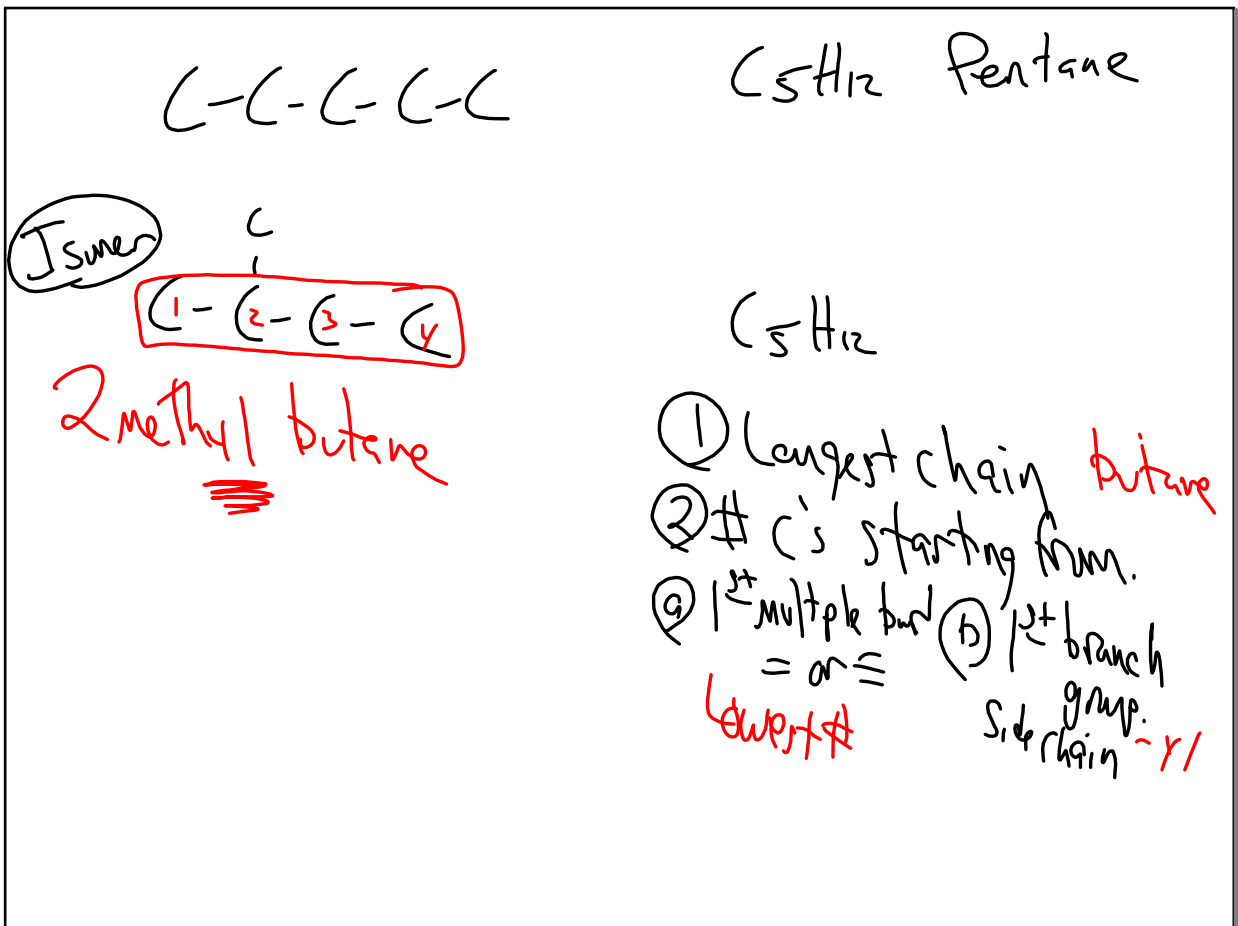 C-C-C-C-C
C5H12 Pentane
Isomer
C
C1-C2-C3-C4
2 methyl butane
C5H12
① Longest chain butane
② # C's starting from.
ⓐ 1st multiple bond
= or ≡
Lowest #
ⓑ 1st branch
group.
Side chain -yl